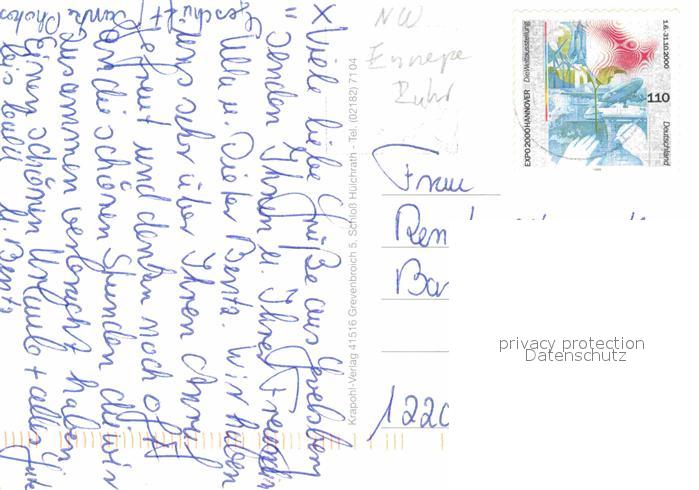 X Viele liebe Grüße aus Gevelsberg
" senden Ihnen u. Ihrer Freundin
Ulla u. Dieter Bentz. Wir haben
uns sehr über Ihren Anruf
gefreut und denken noch oft
an die schönen Stunden die wir
zusammen verbracht haben.
Einen schönen Urlaub + alles Gute
bis bald U. Bentz
Geschützt
Photos
Krapohl-Verlag 41516 Grevenbroich 5, Schloß Hülchrath - Tel. (02182) 7104
NW
Ennepe
Ruhr
EXPO 2000 HANNOVER Die Weltausstellung
1.6.-31.10.2000
110
Deutschland
Frau
Ren
Bar
1220
privacy protection
Datenschutz